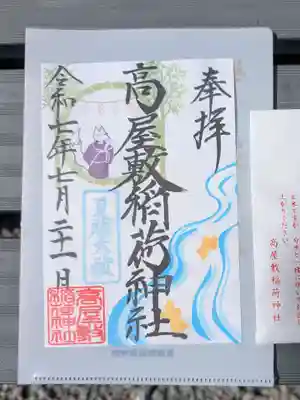 奉拝
高屋敷稲荷神社
夏詣大祓
令和七年七月二十一日
高屋敷
稲荷神社
高屋敷稲荷神社